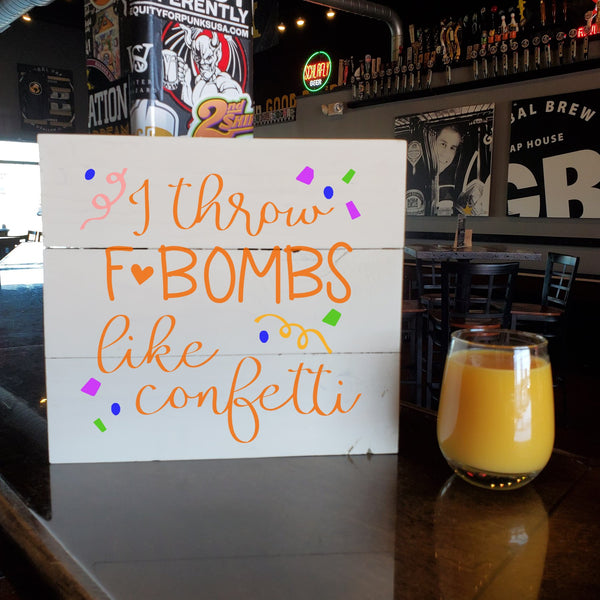 FERENTLY
EQUITYFORPUNKSUSA.COM
ATION
2nd
SCHLAFLY
BEER
BAL BREW
AP HOUSE
GB
I throw
F BOMBS
like
confetti